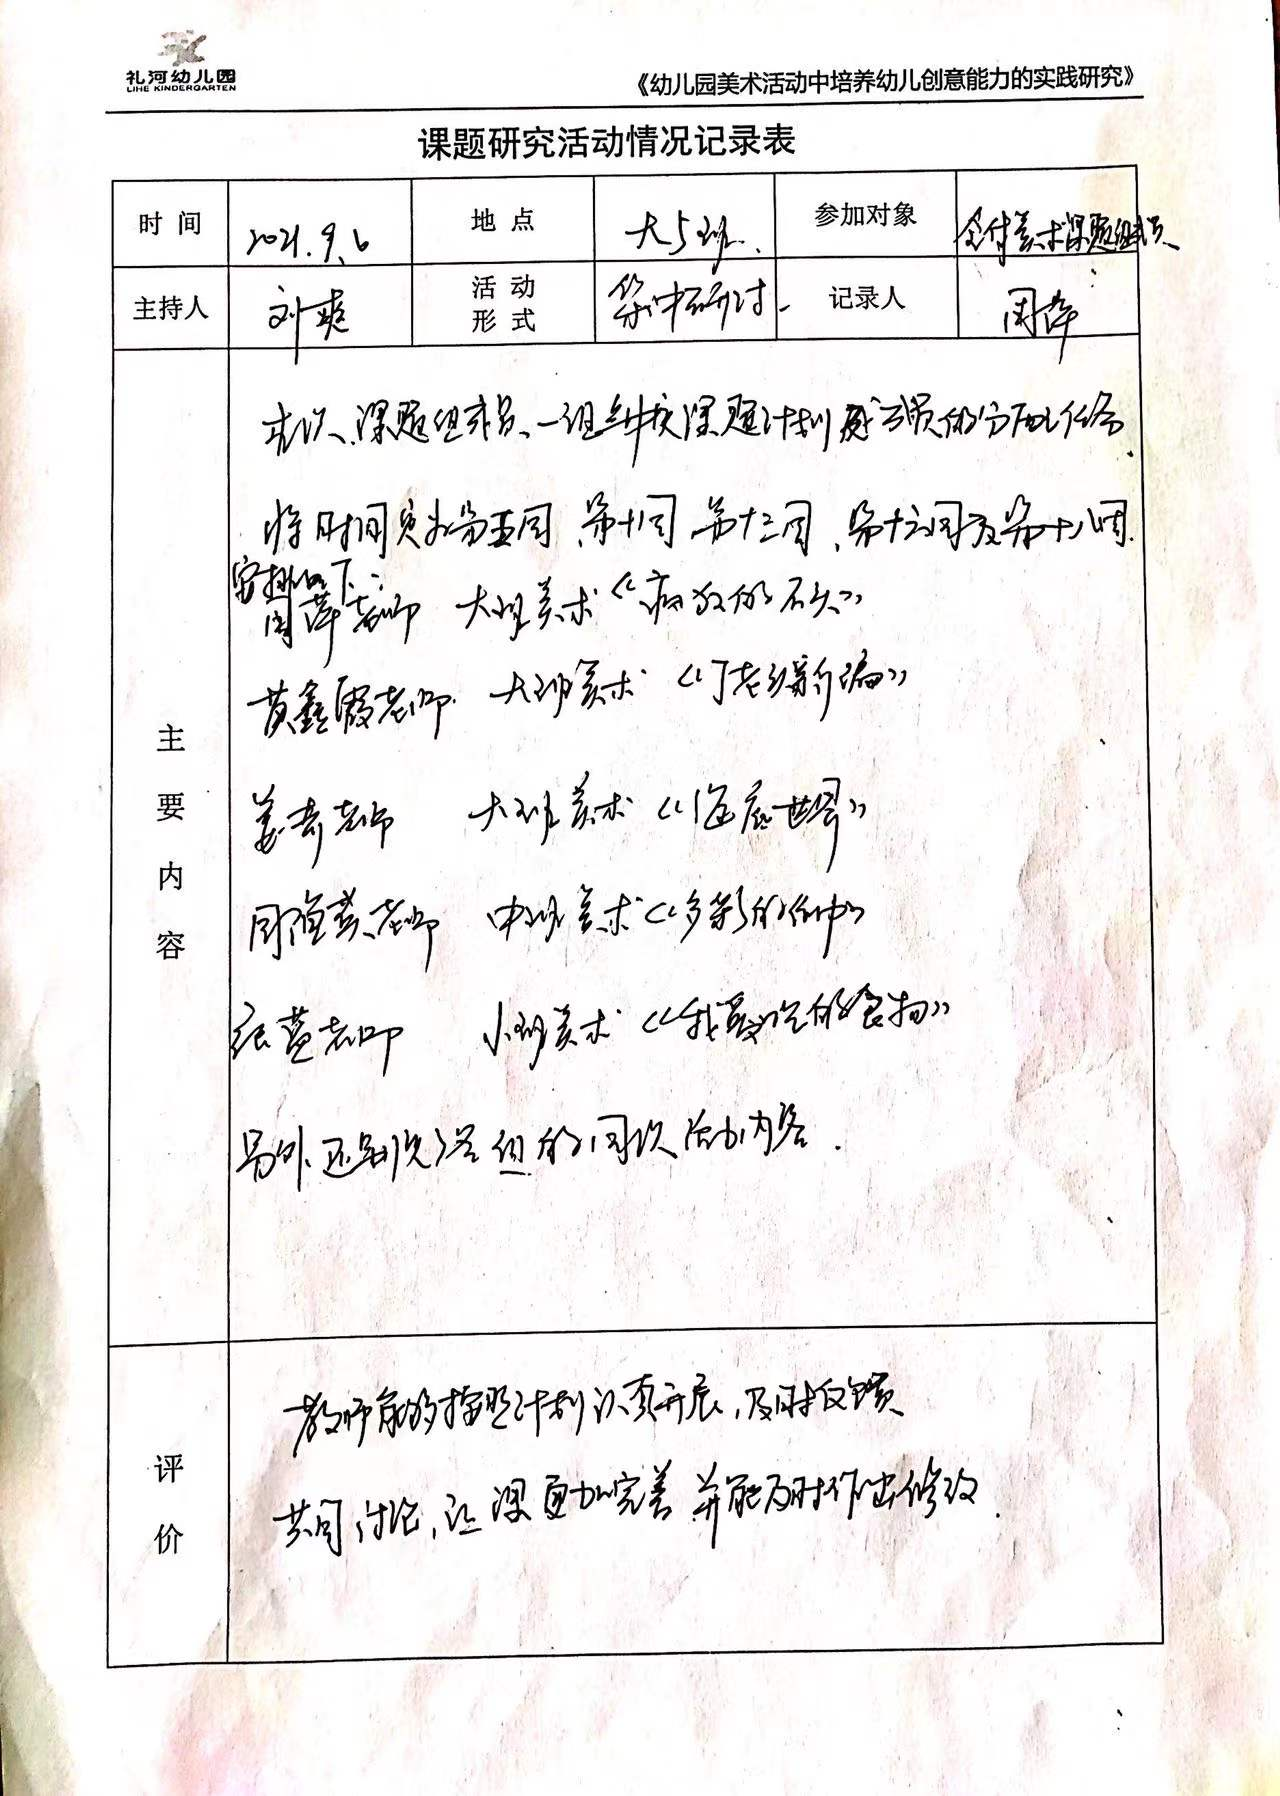 礼河幼儿园
LIHE KINDERGARTEN
《幼儿园美术活动中培养幼儿创意能力的实践研究》
课题研究活动情况记录表
时 间 2021.9.6 地 点 大5班 参加对象 全体美术课题组成员
主持人 刘爽 活动形式 集中研讨 记录人 周萍
主要内容
本次、课题组成员、一组 课题计划 成员的分配任务
将时间定为第五周、第十周 第十三周、第十六周及第十八周.
安排如下:
周萍老师 大班美术《 的石头》
黄鑫霞老师 大班美术《 新编》
姜 老师 大班美术《海底世界》
周 老师 中班美术《多彩的 》
张蓝老师 小班美术《我 吃的食物》
另外、还 了各组的 次活动内容.
评价
教师能够按照计划认真开展,及时反馈
共同讨论,让课更加完善 并能及时作出修改.